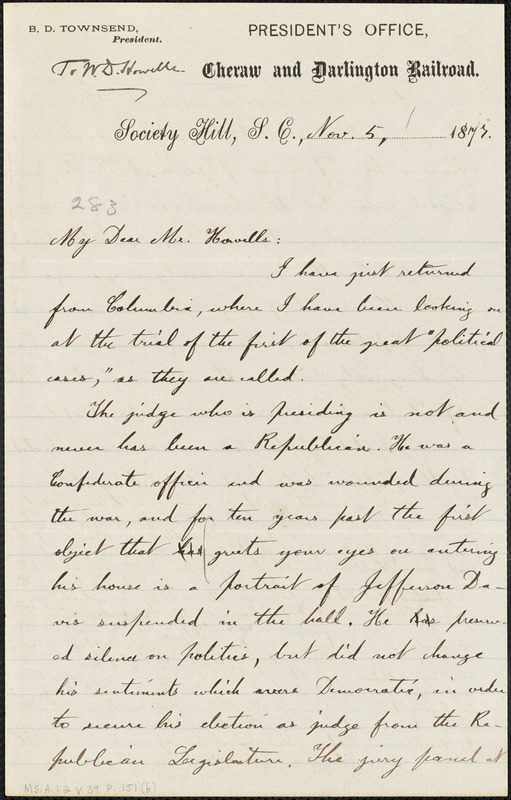 B. D. TOWNSEND,
President.
PRESIDENT'S OFFICE,
To W. D. Howells.
Cheraw and Darlington Railroad.
Society Hill, S. C., Nov. 5, 1877.
283
My Dear Mr. Howells:
I have just returned
from Columbia, where I have been looking on
at the trial of the first of the great "political
cases," as they are called.
The judge who is presiding is not and
never has been a Republican. He was a
Confederate officer and was wounded during
the war, and for ten years past the first
object that has greets your eyes on entering
his house is a portrait of Jefferson Da-
vis suspended in the hall. He has preserv-
ed silence on politics, but did not change
his sentiments which were Democratic, in order
to secure his election as judge from the Re-
publican Legislature. The jury panel
MS. A. 1. 2 V. 39 P. 151 (b)